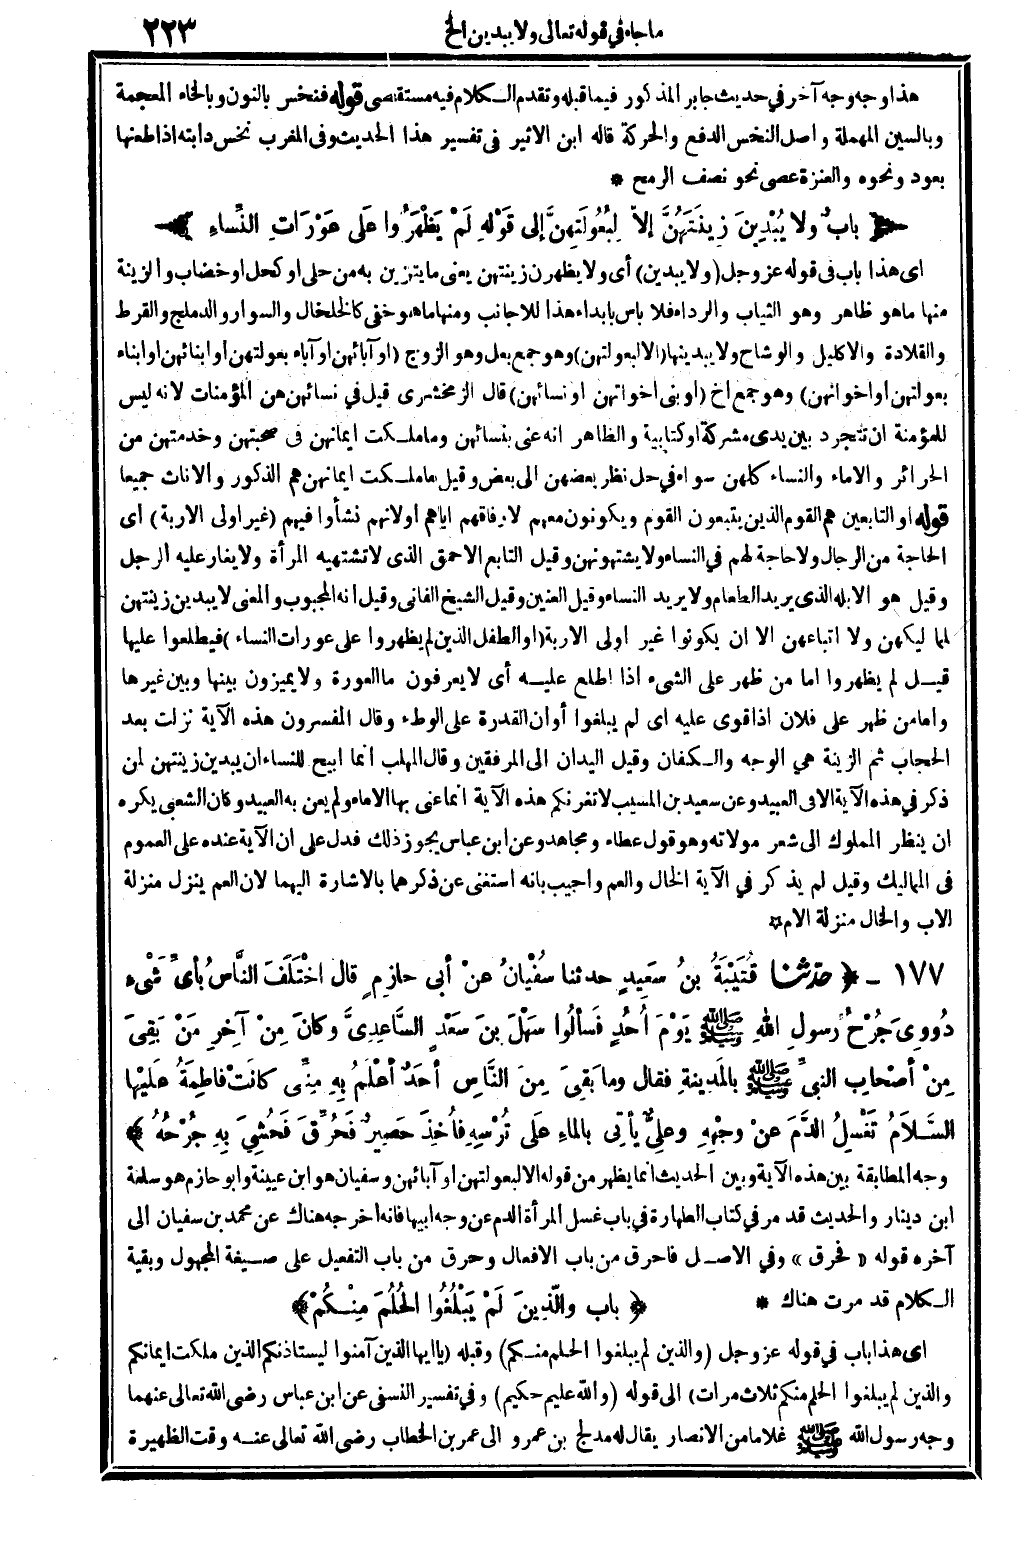 ما جاء في قوله تعالى ولا يبدين الخ ٢٢٣
هذا وجه وجه آخر في حديث جابر المذكور فيما قبله وتقدم الكلام فيه مستقصى قوله فنخس بالنون وبالخاء المعجمة
وبالسين المهملة واصل النخس الدفع والحركة قاله ابن الاثير في تفسير هذا الحديث وفي المغرب نخس دابته اذا طعنها
بعود ونحوه والعنزة عصى نحو نصف الرمح *
﴿ بابٌ ولا يُبْدِينَ زِينَتَهُنَّ إلاّ لِبُعُولَتِهِنَّ إلى قَوْلِهِ لَمْ يَظْهَرُوا عَلَى عَوْرَاتِ النِّساءِ ﴾
اى هذا باب في قوله عز وجل (ولا يبدين) أى ولا يظهرن زينتهن يعنى ما يتزين به من حلى او كحل او خضاب والزينة
منها ما هو ظاهر وهو الثياب والرداء فلا باس بابداء هذا للاجانب ومنها ما هو خفى كالخلخال والسوار والدملج والقرط
والقلادة والاكليل والوشاح ولا يبدينها (الا لبعولتهن) وهو جمع بعل وهو الزوج (او آبائهن او آباء بعولتهن او ابنائهن او ابناء
بعولتهن أو اخوانهن) وهو جمع اخ (او بنى اخواتهن او نسائهن) قال الزمخشرى قيل في نسائهن هن المؤمنات لانه ليس
للمؤمنة ان تتجرد بين يدى مشركة او كتابية والظاهر انه عنى بنسائهن وما ملكت ايمانهن في صحبتهن وخدمتهن من
الحرائر والاماء والنساء كلهن سواء في حل نظر بعضهن الى بعض وقيل ما ملكت ايمانهن هم الذكور والاناث جميعا
قوله او التابعين هم القوم الذين يتبعون القوم ويكونون معهم لارفاقهم اياهم او لانهم نشأوا فيهم (غير اولى الاربة) اى
الحاجة من الرجال ولا حاجة لهم في النساء ولا يشتهونهن وقيل التابع الاحمق الذى لا تشتهيه المرأة ولا يغار عليه الرجل
وقيل هو الابله الذى يريد الطعام ولا يريد النساء وقيل العنين وقيل الشيخ الفانى وقيل انه المجبوب والمعنى لا يبدين زينتهن
لمماليكهن ولا اتباعهن الا ان يكونوا غير اولى الاربة (او الطفل الذين لم يظهروا على عورات النساء) فيطلعوا عليها
قيل لم يظهروا اما من ظهر على الشىء اذا اطلع عليه أى لا يعرفون ما العورة ولا يميزون بينها وبين غيرها
واما من ظهر على فلان اذا قوى عليه اى لم يبلغوا أوان القدرة على الوطء وقال المفسرون هذه الآية نزلت بعد
الحجاب ثم الزينة هي الوجه والكفان وقيل اليدان الى المرفقين وقال المهلب انما ابيح للنساء ان يبدين زينتهن لمن
ذكر في هذه الآية الا في العبيد وعن سعيد بن المسيب لا تغرنكم هذه الآية انما عنى بها الاماء ولم يعن به العبيد وكان الشعبى يكره
ان ينظر المملوك الى شعر مولاته وهو قول عطاء ومجاهد وعن ابن عباس يجوز ذلك فدل على ان الآية عنده على العموم
فى المماليك وقيل لم يذكر في الآية الخال والعم واجيب بانه استغنى عن ذكرهما بالاشارة اليهما لان العم ينزل منزلة
الاب والخال منزلة الام *
١٧٧ - ﴿ حدّثنا قُتَيْبَةُ بنُ سَعِيدٍ حدثنا سُفْيَانُ عنْ أبى حازِمٍ قال اخْتَلَفَ النَّاسُ بأىِّ شَىْءٍ
دُووِىَ جُرْحُ رسولِ اللهِ ﷺ يَوْمَ أُحُدٍ فَسألُوا سَهْلَ بنَ سَعْدٍ السَّاعِدِىَّ وكانَ مِنْ آخِرِ مَنْ بَقِىَ
مِنْ أصْحابِ النبىِّ ﷺ بالمَدِينةِ فقال وما بَقِىَ مِنَ النَّاسِ أحَدٌ أعْلَمُ بِهِ مِنِّى كانَتْ فاطِمَةُ عَلَيْها
السَّلَامُ تَغْسِلُ الدَّمَ عنْ وجْهِهِ وعلىٌّ يأتِى بالماءِ عَلَى تُرْسِهِ فأُخِذَ حَصِيرٌ فَحُرِّقَ فَحُشِيَ بِهِ جُرْحُهُ ﴾
وجه المطابقة بين هذه الآية وبين الحديث انما يظهر من قوله الا لبعولتهن او آبائهن وسفيان هو ابن عيينة وابو حازم هو سلمة
ابن دينار والحديث قد مر في كتاب الطهارة في باب غسل المرأة الدم عن وجه ابيها فانه اخرجه هناك عن محمد بن سفيان الى
آخره قوله «فحرق» وفي الاصل فاحرق من باب الافعال وحرق من باب التفعيل على صيغة المجهول وبقية
الكلام قد مرت هناك * ﴿ باب والَّذِينَ لَمْ يَبْلُغُوا الحُلُمَ مِنْكُمْ ﴾
اى هذا باب في قوله عز وجل (والذين لم يبلغوا الحلم منكم) وقبله (يا ايها الذين آمنوا ليستاذنكم الذين ملكت ايمانكم
والذين لم يبلغوا الحلم منكم ثلاث مرات) الى قوله (والله عليم حكيم) وفي تفسير النسفى عن ابن عباس رضى الله تعالى عنهما
وجه رسول الله ﷺ غلاما من الانصار يقال له مدلج بن عمرو الى عمر بن الخطاب رضى الله تعالى عنه وقت الظهيرة